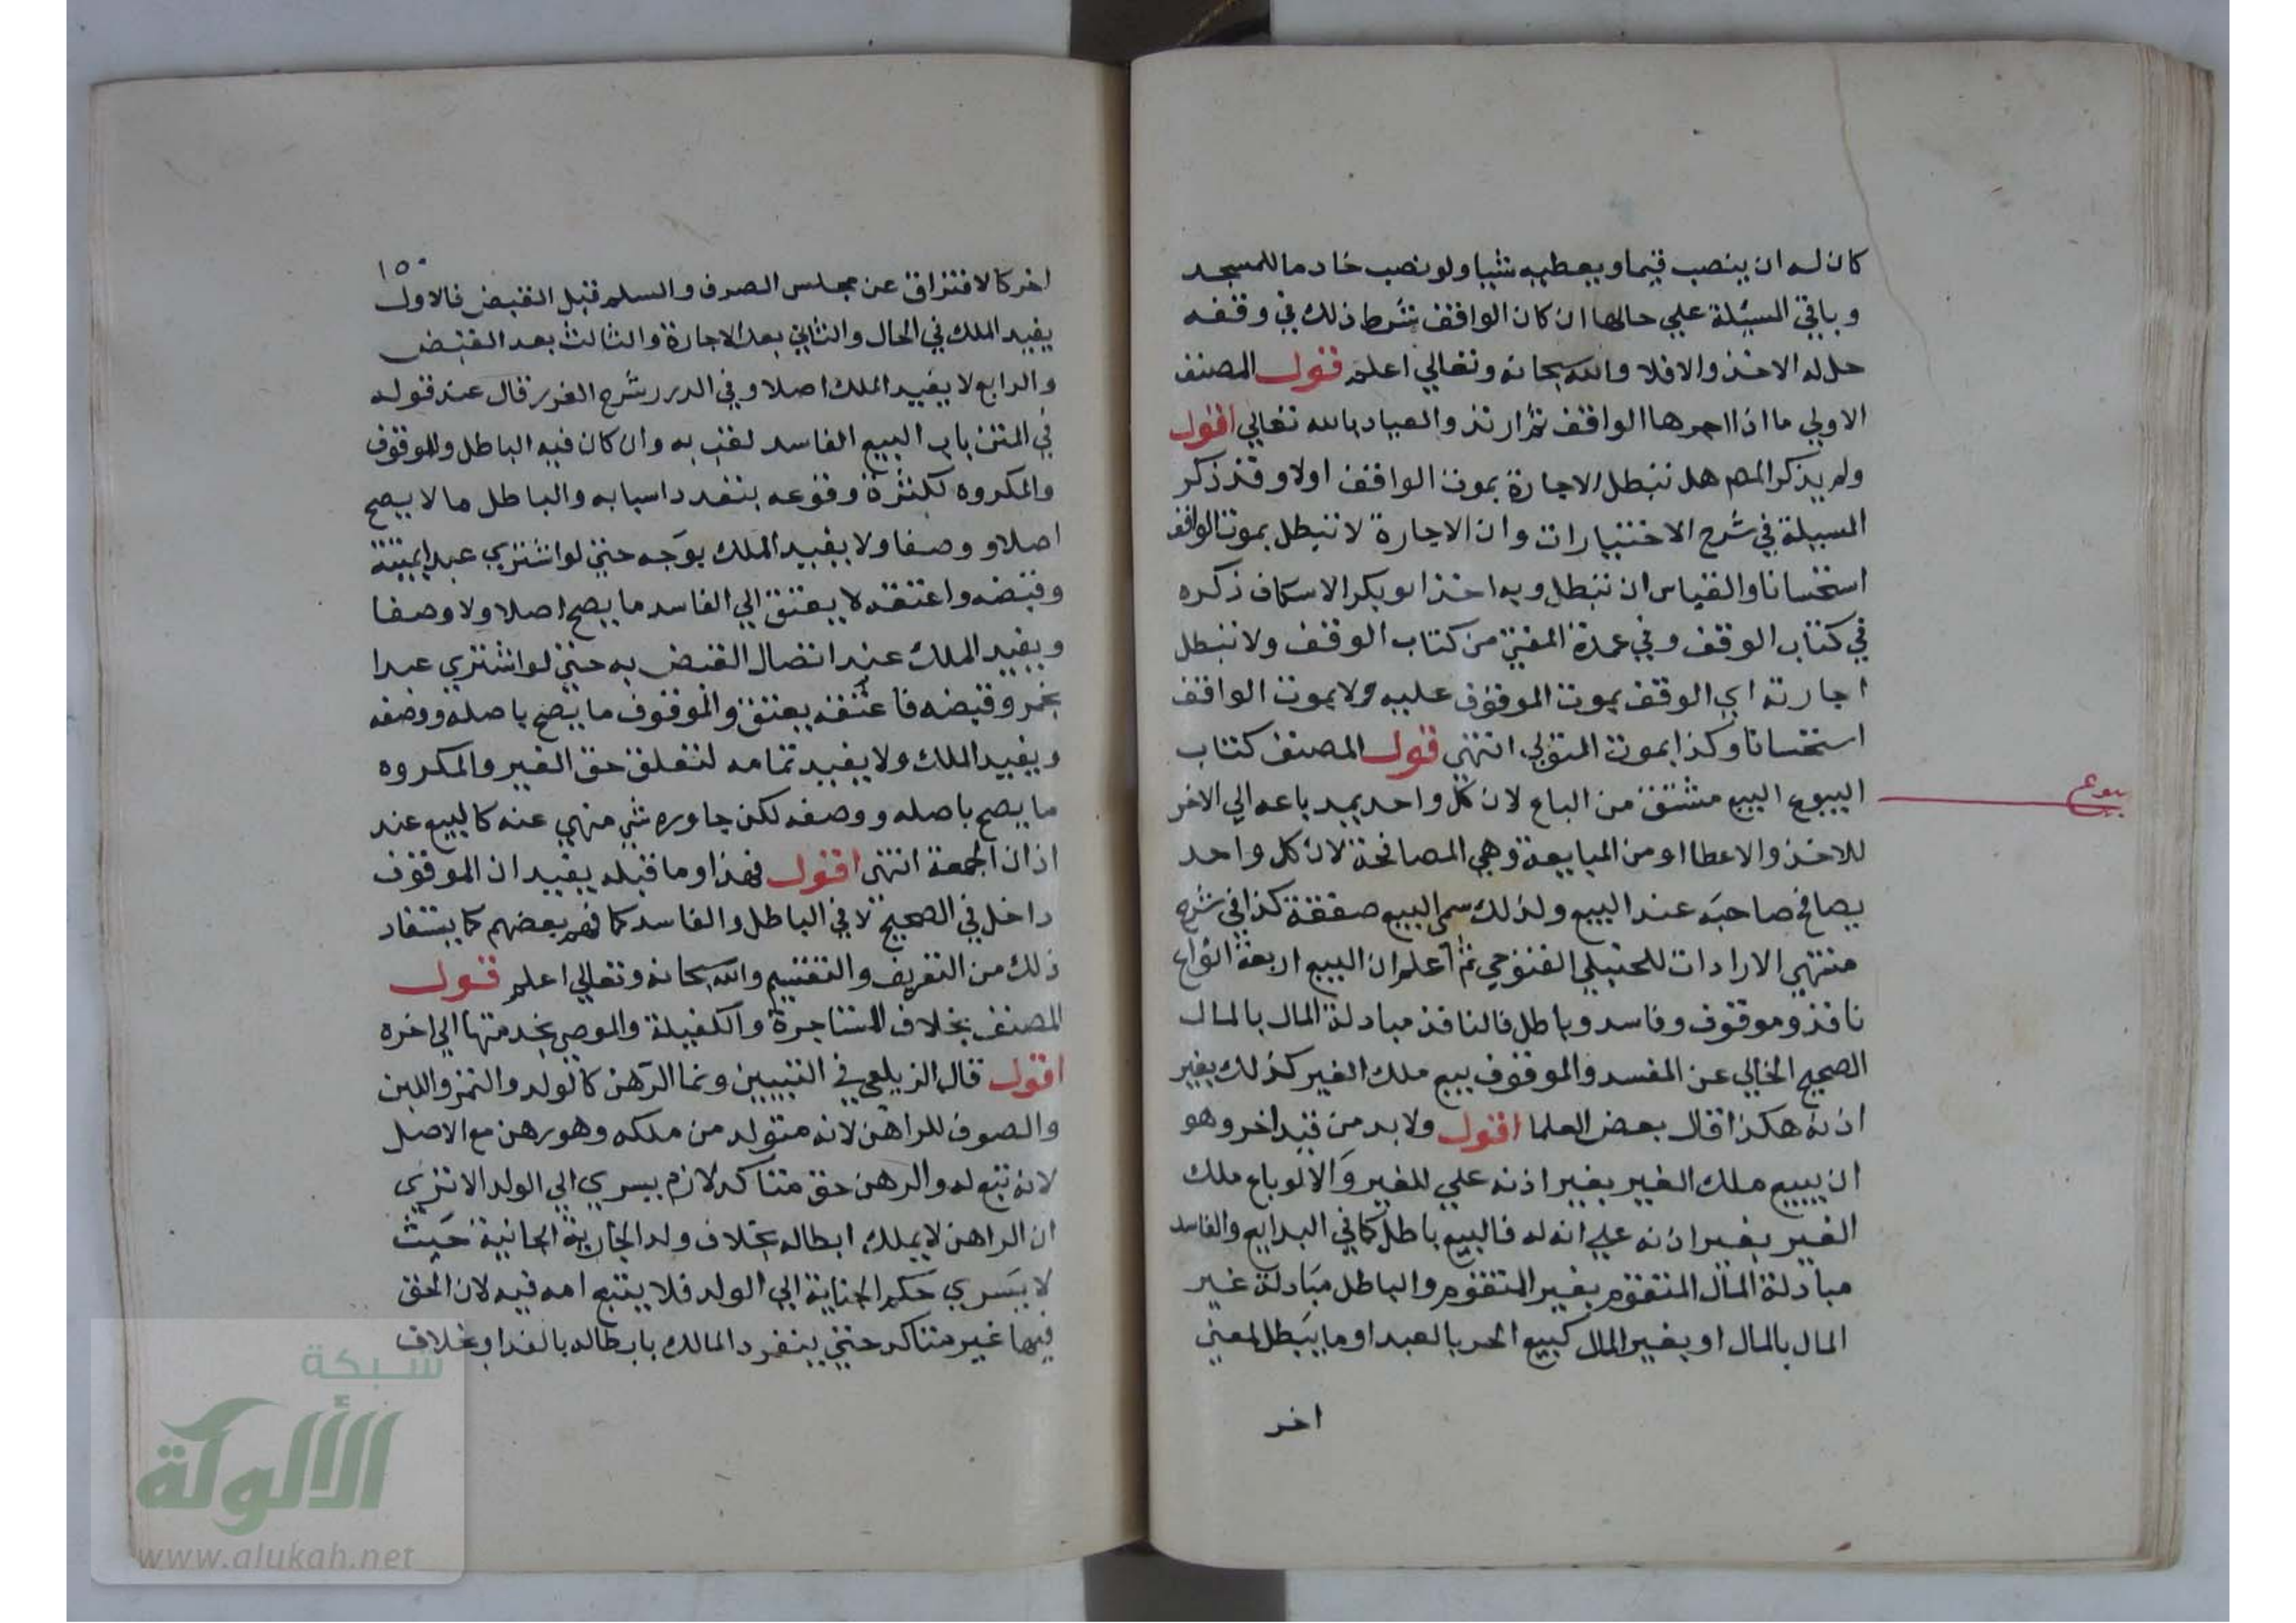 كان له ان ينصب قيما ويعطيه شيا ولو نصب خادما للمسجد
وباقي المسيلة علي حالها ان كان الواقف شرط ذلك في وقفه
حل له الاخذ والا فلا والله سبحانه وتعالي اعلم قول المصنف
الاولي ما اذا اجرها الواقف ثم ارتد والعياد بالله تعالي اقول
ولم يذكر المص هل تبطل الاجارة بموت الواقف اولا وقد ذكر
المسيلة في شرح الاختيارات وان الاجارة لا تبطل بموت الواقف
استحسانا والقياس ان تبطل وبه اخذ ابو بكر الاسكاف ذكره
في كتاب الوقف وفي عمدة المفتي من كتاب الوقف ولا تبطل
اجارته اي الوقف بموت الموقوف عليه ولا بموت الواقف
استحسانا وكذا بموت المتولي انتهي قول المصنف كتاب
البيوع البيع مشتق من الباع لان كل واحد يمد باعه الي الاخر
بيوع
للاخذ والاعطا او من المبايعة وهي المصافحة لان كل واحد
يصافح صاحبه عند البيع ولذلك سمي البيع صفقة كذا في شرح
منتهي الارادات للحنبلي الفتوحي ثم اعلم ان البيع اربعة انواع
نافذ وموقوف وفاسد وباطل فالنافذ مبادلة المال بالمال
الصحيح الخالي عن المفسد والموقوف بيع ملك الغير كذلك بغير
اذنه هكذا قال بعض العلما اقول ولا بد من قيد اخر وهو
ان يبيع ملك الغير بغير اذنه علي للغير والا لو باع ملك
الغير بغير اذنه علي انه له فالبيع باطل كما في البدايع والفاسد
مبادلة المال المتقوم بغير المتقوم والباطل مبادلة غير
المال بالمال او بغير المال كبيع الحر بالعبد او ما يبطل لمعني
اخر
١٥٠
اخر كالافتراق عن مجلس الصرف والسلم قبل القبض فالاول
يفيد الملك في الحال والثاني بعد الاجارة والثالث بعد القبض
والرابع لا يفيد الملك اصلا وفي الدرر شرح الغرر قال عند قوله
في المتن باب البيع الفاسد لقب به وان كان فيه الباطل والموقوف
والمكروه لكثرة وقوعه بتعدد اسبابه والباطل ما لا يصح
اصلا ووصفا ولا يفيد الملك بوجه حتي لو اشتري عبدا بميتة
وقبضه واعتقه لا يعتق الي الفاسد ما يصح اصلا ولا وصفا
ويفيد الملك عند اتصال القبض به حتي لو اشتري عبدا
بخمر وقبضه فاعتقه يعتق والموقوف ما يصح باصله ووصفه
ويفيد الملك ولا يفيد تمامه لتعلق حق الغير والمكروه
ما يصح باصله ووصفه لكن جاوره شي منهي عنه كالبيع عند
اذان الجمعة انتهي اقول فهذا وما قبله يفيد ان الموقوف
داخل في الصحيح لا في الباطل والفاسد كما فهم بعضهم كما يستفاد
ذلك من التعريف والتقسيم والله سبحانه وتعالي اعلم قول
المصنف بخلاف المستاجرة والكفيلة والموصي بخدمتها الي اخره
اقول قال الزيلعي في التبيين ونما الرهن كالولد والثمر واللبن
والصوف للراهن لانه متولد من ملكه وهو رهن مع الاصل
لانه تبع له والرهن حق متاكد لازم يسري الي الولد الا تري
ان الراهن لا يملك ابطاله بخلاف ولد الجارية الجانية حيث
لا يسري حكم الجناية الي الولد فلا يتبع امه فيه لان الحق
فيها غير متاكد حتي ينفرد المالك بابطاله بالفدا وبخلاف
شبكة
الألوكة
www.alukah.net